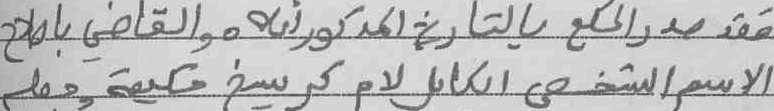 فقد صدر الحكم بالتاريخ المذكور أعلاه والقاضي باصلاح
الاسم الشخصي الكامل لام كريسيخ فكيعة وجعله